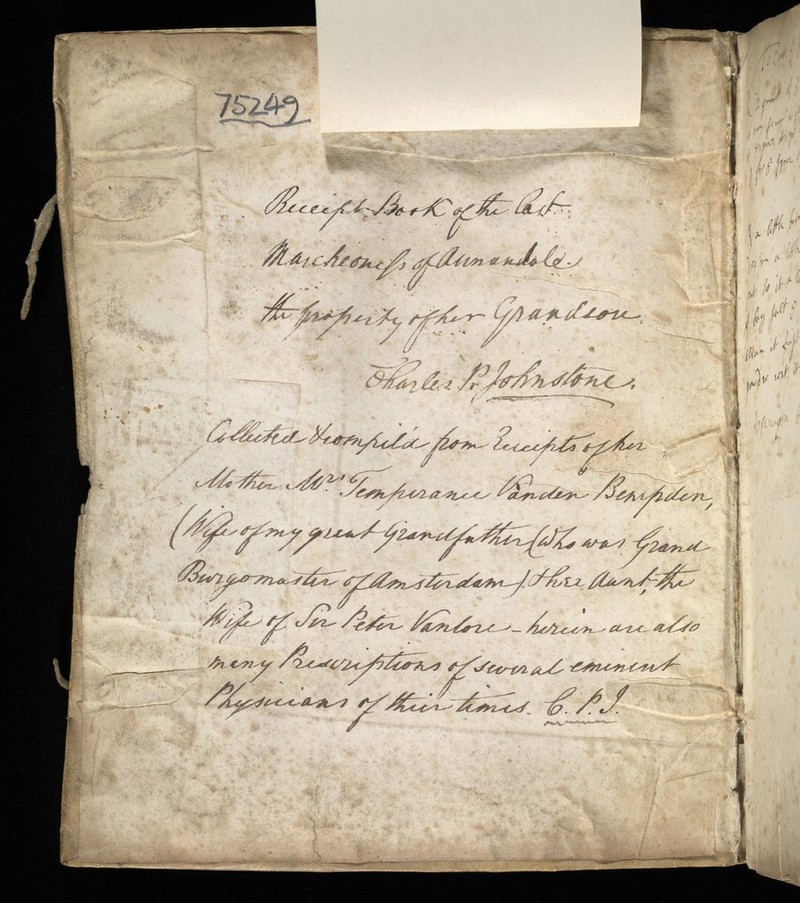 75249
Receipt Book of the Last
Marcheoness of Annandale
the property of her Grandson
Charles P. Johnstone.
Collected & compil'd from Receipts of her
Mother Mrs. Temperance Vanden Bempden,
(Wife of my great Grandfather (who was Grand
Burgomaster of Amsterdam) & her Aunt, the
Wife of Sir Peter Vanlore - herein are also
many Prescriptions of several eminent
Physicians of their times. C. P. J.